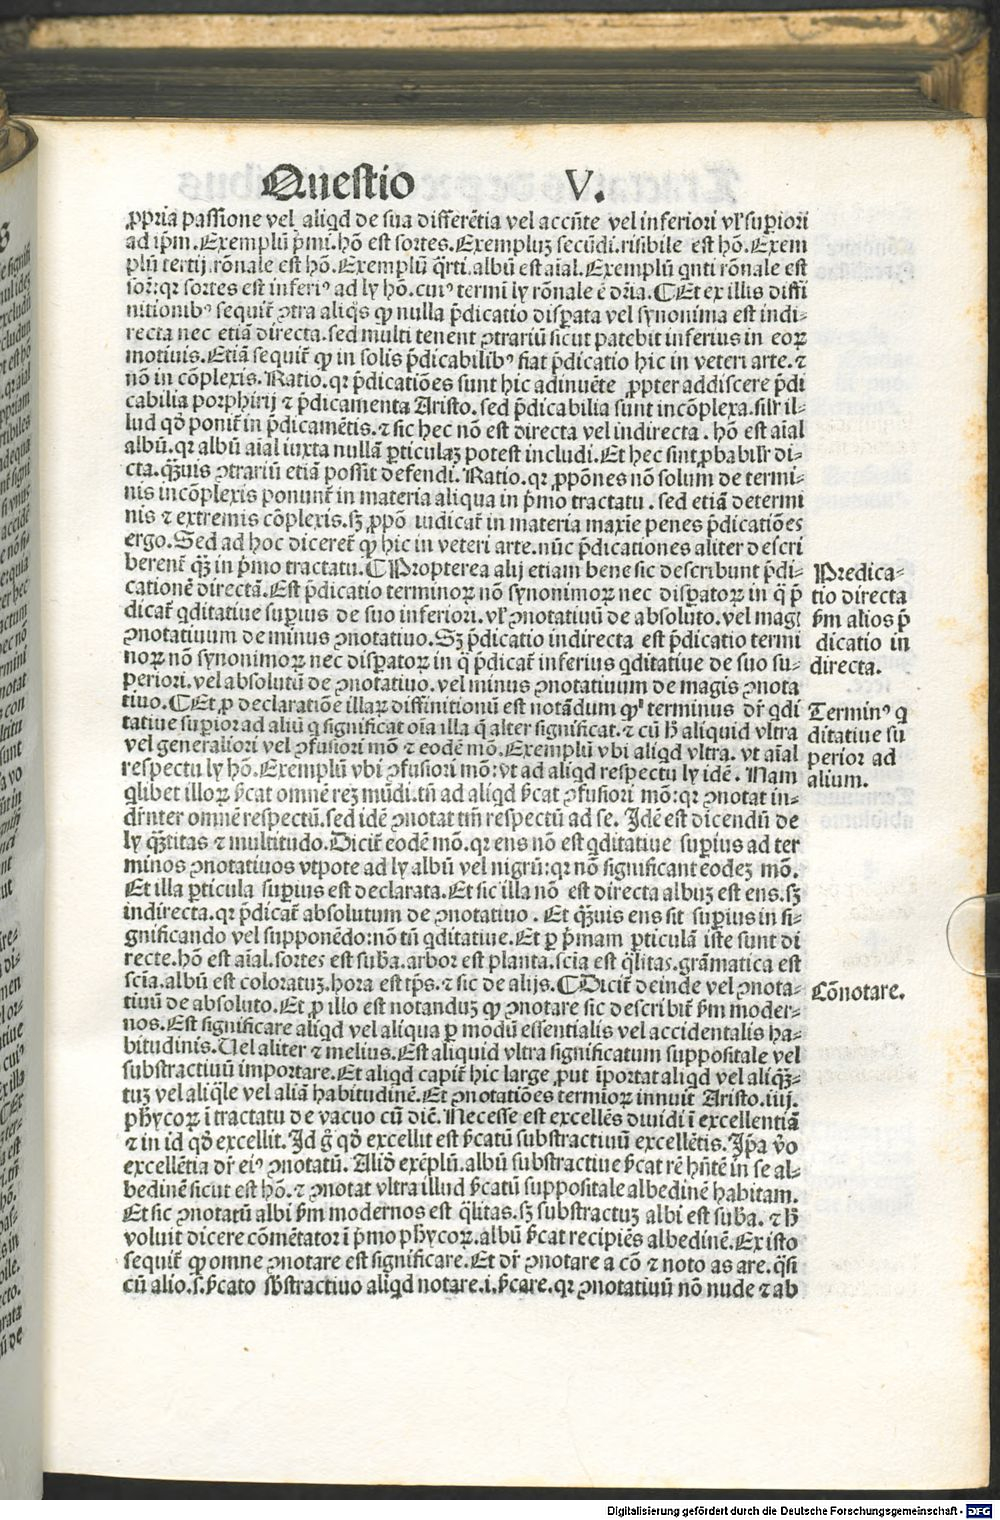 Questio V.
ꝓpria passione vel aliqd de sua differẽtia vel accñte vel inferiori vl' supiori
ad ip̃m. Exemplũ p̃mi. hõ est sortes. Exempluꝫ secũdi. risibile est hõ. Exem
plũ tertij. rõnale est hõ. Exemplũ q̃rti. albũ est aĩal. Exemplũ qnti rõnale est
sor. qr sortes est inferiꝰ ad ly hõ. cuiꝰ termi ly rõnale ẽ dr̃ia. ⸿Et ex illis diffi
nitionibꝰ sequit̃ ꝯtra aliq̃s ꝙ nulla p̃dicatio disꝑata vel synonima est indi-
recta nec etiã directa. sed multi tenent ꝯtrariũ sicut patebit inferius in eoꝝ
motiuis. Etiã sequit̃ ꝙ in solis p̃dicabilibꝰ fiat p̃dicatio hic in veteri arte. ⁊
nõ in cõplexis. Ratio. qr p̃dicatiões sunt hic adinuẽte ꝓpter addiscere p̃di
cabilia porphirij ⁊ p̃dicamenta Aristo. sed p̃dicabilia sunt incõplexa. silr il-
lud qd̃ ponit̃ in p̃dicamẽtis. ⁊ sic hec nõ est directa vel indirecta. hõ est aĩal
albũ. qr albũ aĩal iuxta nullã ꝑticulaꝫ potest includi. Et hec sint ꝓbabilr di-
cta. q̃ꝫuis ꝯtrariũ etiã possit defendi. Ratio. qr ꝓpõnes nõ solum de termi-
nis incõplexis ponunt̃ in materia aliqua in p̃mo tractatu. sed etiã determi
nis ⁊ extremis cõplexis. sꝫ ꝓpõ iudicat̃ in materia maxie penes p̃dicatiões
ergo. Sed ad hoc diceret̃ ꝙ hic in veteri arte. nũc p̃dicationes aliter descri
berent̃ q̃ꝫ in p̃mo tractatu. ⸿Propterea alij etiam bene sic describunt p̃di-
cationẽ directã. Est p̃dicatio terminoꝝ nõ synonimoꝝ nec disꝑatoꝝ in q̃ p̃
dicat̃ qditatiue suꝑius de suo inferiori. vl' ꝯnotatiuũ de absoluto. vel magl
ꝯnotatiuum de minus ꝯnotatiuo. Sꝫ p̃dicatio indirecta est p̃dicatio termi
noꝝ nõ synonimoꝝ nec disꝑatoꝝ in q̃ p̃dicat̃ inferius qditatiue de suo su-
periori. vel absolutũ de ꝯnotatiuo. vel minus ꝯnotatiuum de magis ꝯnota
tiuo. ⸿Et ꝓ declaratiõe illaꝝ diffinitionũ est notãdum ꝙ terminus dr̃ qdi
tatiue suꝑior ad aliũ q significat oĩa illa q̃ alter significat. ⁊ cũ h̃ aliquid vltra
vel generaliori vel ꝯfusiori mõ ⁊ eodẽ mõ. Exemplũ vbi aliqd vltra. vt aĩal
respectu ly hõ. Exemplũ vbi ꝯfusiori mõ: vt ad aliqd respectu ly idẽ. Nam
qlibet illoꝝ s̃cat omnẽ reꝫ mũdi. tñ ad aliqd s̃cat ꝯfusiori mõ: qr ꝯnotat in-
dr̃nter omnẽ respectũ. sed idẽ ꝯnotat tm̃ respectũ ad se. Idẽ est dicendũ de
ly q̃ꝫtitas ⁊ multitudo. Dicit̃ eodẽ mõ. qr ens nõ est qditatiue suꝑius ad ter
minos ꝯnotatiuos vtpote ad ly albũ vel nigrũ: qr nõ significant eodeꝫ mõ.
Et illa ꝑticula suꝑius est declarata. Et sic illa nõ est directa albuꝫ est ens. sꝫ
indirecta. qr p̃dicat̃ absolutum de ꝯnotatiuo. Et q̃ꝫuis ens sit suꝑius in si-
gnificando vel supponẽdo: nõ tñ qditatiue. Et ꝑ p̃mam ꝑticulã iste sunt di
recte. hõ est aĩal. sortes est sub̃a. arbor est planta. scĩa est q̃litas. grãmatica est
scĩa. albũ est coloratuꝫ. hora est tp̃s. ⁊ sic de alijs. ⸿Dicit̃ deinde vel ꝯnota-
tiuũ de absoluto. Et ꝓ illo est notanduꝫ ꝙ ꝯnotare sic describit̃ s̃m moder-
nos. Est significare aliqd vel aliqua ꝑ modũ essentialis vel accidentalis ha-
bitudinis. Uel aliter ⁊ melius. Est aliquid vltra significatum suppositale vel
substractiuũ importare. Et aliqd capit̃ hic large ꝓut ĩportat aliqd vel aliq̃ꝫ-
tuꝫ vel aliq̃le vel aliã habitudinẽ. Et ꝯnotatiões termioꝝ innuit Aristo. iiij.
phycoꝝ ĩ tractatu de vacuo cũ diẽ. Necesse est excellẽs diuidi ĩ excellentiã
⁊ in id qd̃ excellit. Id g̃ qd̃ excellit est s̃catũ substractiuũ excellẽtis. Ip̃a v̉o
excellẽtia dr̃ eiꝰ ꝯnotatũ. Aliđ exẽplũ. albũ substractiue s̃cat rẽ hñtẽ in se al-
bedinẽ sicut est hõ. ⁊ ꝯnotat vltra illud s̃catũ suppositale albedinẽ habitam.
Et sic ꝯnotatũ albi s̃m modernos est q̃litas. sꝫ substractuꝫ albi est sub̃a. ⁊ h̃
voluit dicere cõmẽtator ĩ p̃mo phycoꝝ. albũ s̃cat recipiẽs albedinẽ. Ex isto
sequit̃ ꝙ omne ꝯnotare est significare. Et dr̃ ꝯnotare a cõ ⁊ noto as are. q̃si
cũ alio. s. s̃cato sb̃stractiuo aliqd notare. i. s̃care. qr ꝯnotatiuũ nõ nude ⁊ ab
Predica-
tio directa
s̃m alios p̃
dicatio in
directa.
Terminꝰ q
ditatiue su
perior ad
alium.
Cõnotare.
Digitalisierung gefördert durch die Deutsche Forschungsgemeinschaft - DFG